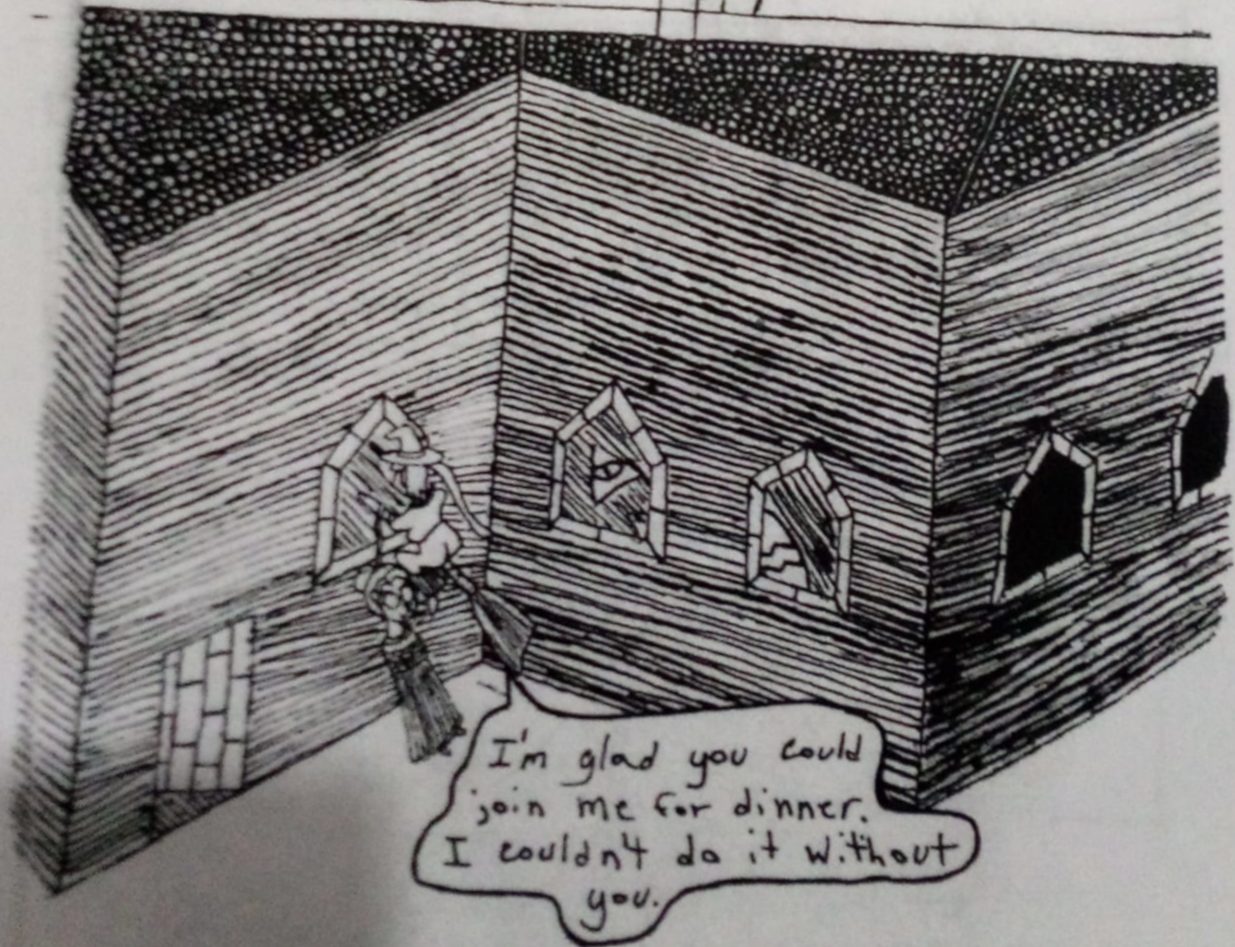 I'm glad you could
join me for dinner.
I couldn't do it without
you.